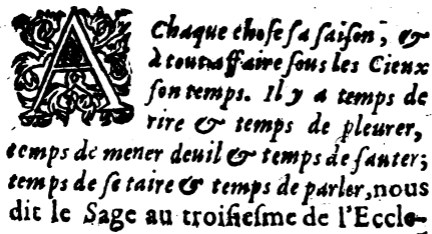 A Chaque chose sa saison, &
à tout affaire sous les Cieux
son temps. Il y a temps de
rire & temps de pleurer,
temps de mener deuil & temps de sauter;
temps de se taire & temps de parler, nous
dit le Sage au troisiesme de l'Eccle-